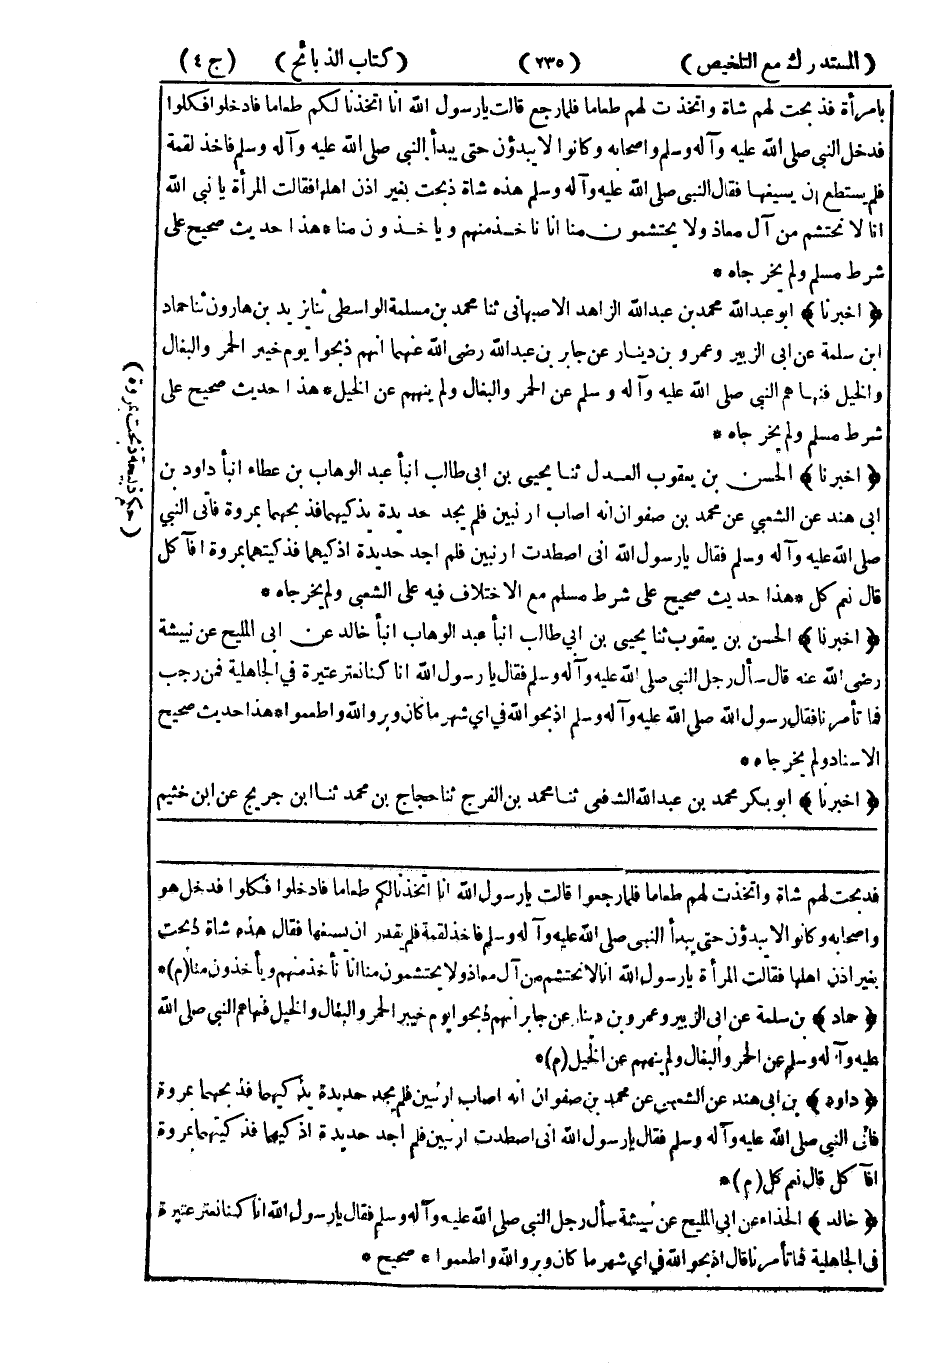 (المستدرك مع التلخيص) (٢٣٥) (كتاب الذبائح) (ج ٤)
بامرأة فذبحت لهم شاة واتخذت لهم طعاما فلما رجع قالت يارسول الله انا اتخذنا لكم طعاما فادخلوا فكلوا
فدخل النبى صلى الله عليه وآله وسلم واصحابه وكانوا لايبدؤن حتى يبدأ النبى صلى الله عليه وآله وسلم فاخذ لقمة
فلم يستطع ان يسيغها فقال النبى صلى الله عليه وآله وسلم هذه شاة ذبحت بغير اذن اهلها فقالت المرأة يا نبى الله
انا لا نحتشم من آل معاذ ولا يحتشمون منا انا ناخذ منهم وياخذون منا * هذا حديث صحيح على
شرط مسلم ولم يخرجاه *
﴿ اخبرنا ﴾ ابو عبدالله محمد بن عبدالله الزاهد الاصبهانى ثنا محمد بن مسلمة الواسطى ثنا يزيد بن هارون ثنا حماد
ابن سلمة عن ابى الزبير وعمرو بن دينار عن جابر بن عبدالله رضى الله عنهما انهم ذبحوا يوم خيبر الحمر والبغال
والخيل فنهاهم النبى صلى الله عليه وآله وسلم عن الحمر والبغال ولم ينههم عن الخيل * هذا حديث صحيح على
شرط مسلم ولم يخرجاه *
﴿ اخبرنا ﴾ الحسن بن يعقوب العدل ثنا يحيى بن ابى طالب انبأ عبد الوهاب بن عطاء انبأ داود بن
ابى هند عن الشعبى عن محمد بن صفوان انه اصاب ارنبين فلم يجد حديدة يذكيهما فذبحهما بمروة فاتى النبي
صلى الله عليه وآله وسلم فقال يارسول الله انى اصطدت ارنبين فلم اجد حديدة اذكيهما فذكيتهما بمروة افآكل
قال نعم كل * هذا حديث صحيح على شرط مسلم مع الاختلاف فيه على الشعبى ولم يخرجاه *
﴿ اخبرنا ﴾ الحسن بن يعقوب ثنا يحيى بن ابي طالب انبأ عبد الوهاب انبأ خالد عن ابى المليح عن نبيشة
رضى الله عنه قال سأل رجل النبى صلى الله عليه وآله وسلم فقال يارسول الله انا كنا نعتر عتيرة في الجاهلية فمن رجب
فما تأمرنا فقال رسول الله صلى الله عليه وآله وسلم اذبحوا لله في اي شهر ما كان وبروا لله واطعموا * هذا حديث صحيح
الاسناد ولم يخرجاه *
﴿ اخبرنا ﴾ ابو بكر محمد بن عبدالله الشافعى ثنا محمد بن الفرج ثنا حجاج بن محمد ثنا ابن جريج عن ابن خثيم
(حكم ذبيحة ذبحت بمروة)
فذبحت لهم شاة واتخذت لهم طعاما فلما رجعوا قالت يارسول الله انا اتخذنا لكم طعاما فادخلوا فكلوا فدخل هو
واصحابه وكانوا لايبدؤن حتى يبدأ النبى صلى الله عليه وآله وسلم فاخذ لقمة فلم يقدر ان يسغها فقال هذه شاة ذبحت
بغير اذن اهلها فقالت المرأة يارسول الله انا لا نحتشم من آل معاذ ولا يحتشمون منا انا نأخذ منهم ويأخذون منا (م) *
﴿ حماد ﴾ بن سلمة عن ابى الزبير وعمرو بن دينار عن جابر انهم ذبحوا يوم خيبر الحمر والبغال والخيل فنهاهم النبى صلى الله
عليه وآله وسلم عن الحمر والبغال ولم ينههم عن الخيل (م) *
﴿ داود ﴾ بن ابى هند عن الشعبى عن محمد بن صفوان انه اصاب ارنبين فلم يجد حديدة يذكيهما فذبحهما بمروة
فاتى النبى صلى الله عليه وآله وسلم فقال يارسول الله انى اصطدت ارنبين فلم اجد حديدة اذكيهما فذكيتهما بمروة
افآكل قال نعم كل (م) *
﴿ خالد ﴾ الحذاء عن ابى المليح عن نبيشة سأل رجل النبى صلى الله عليه وآله وسلم فقال يارسول الله انا كنا نعتر عتيرة
فى الجاهلية فما تأمرنا قال اذبحوا لله في اي شهر ما كان وبروا لله واطعموا * صحيح *